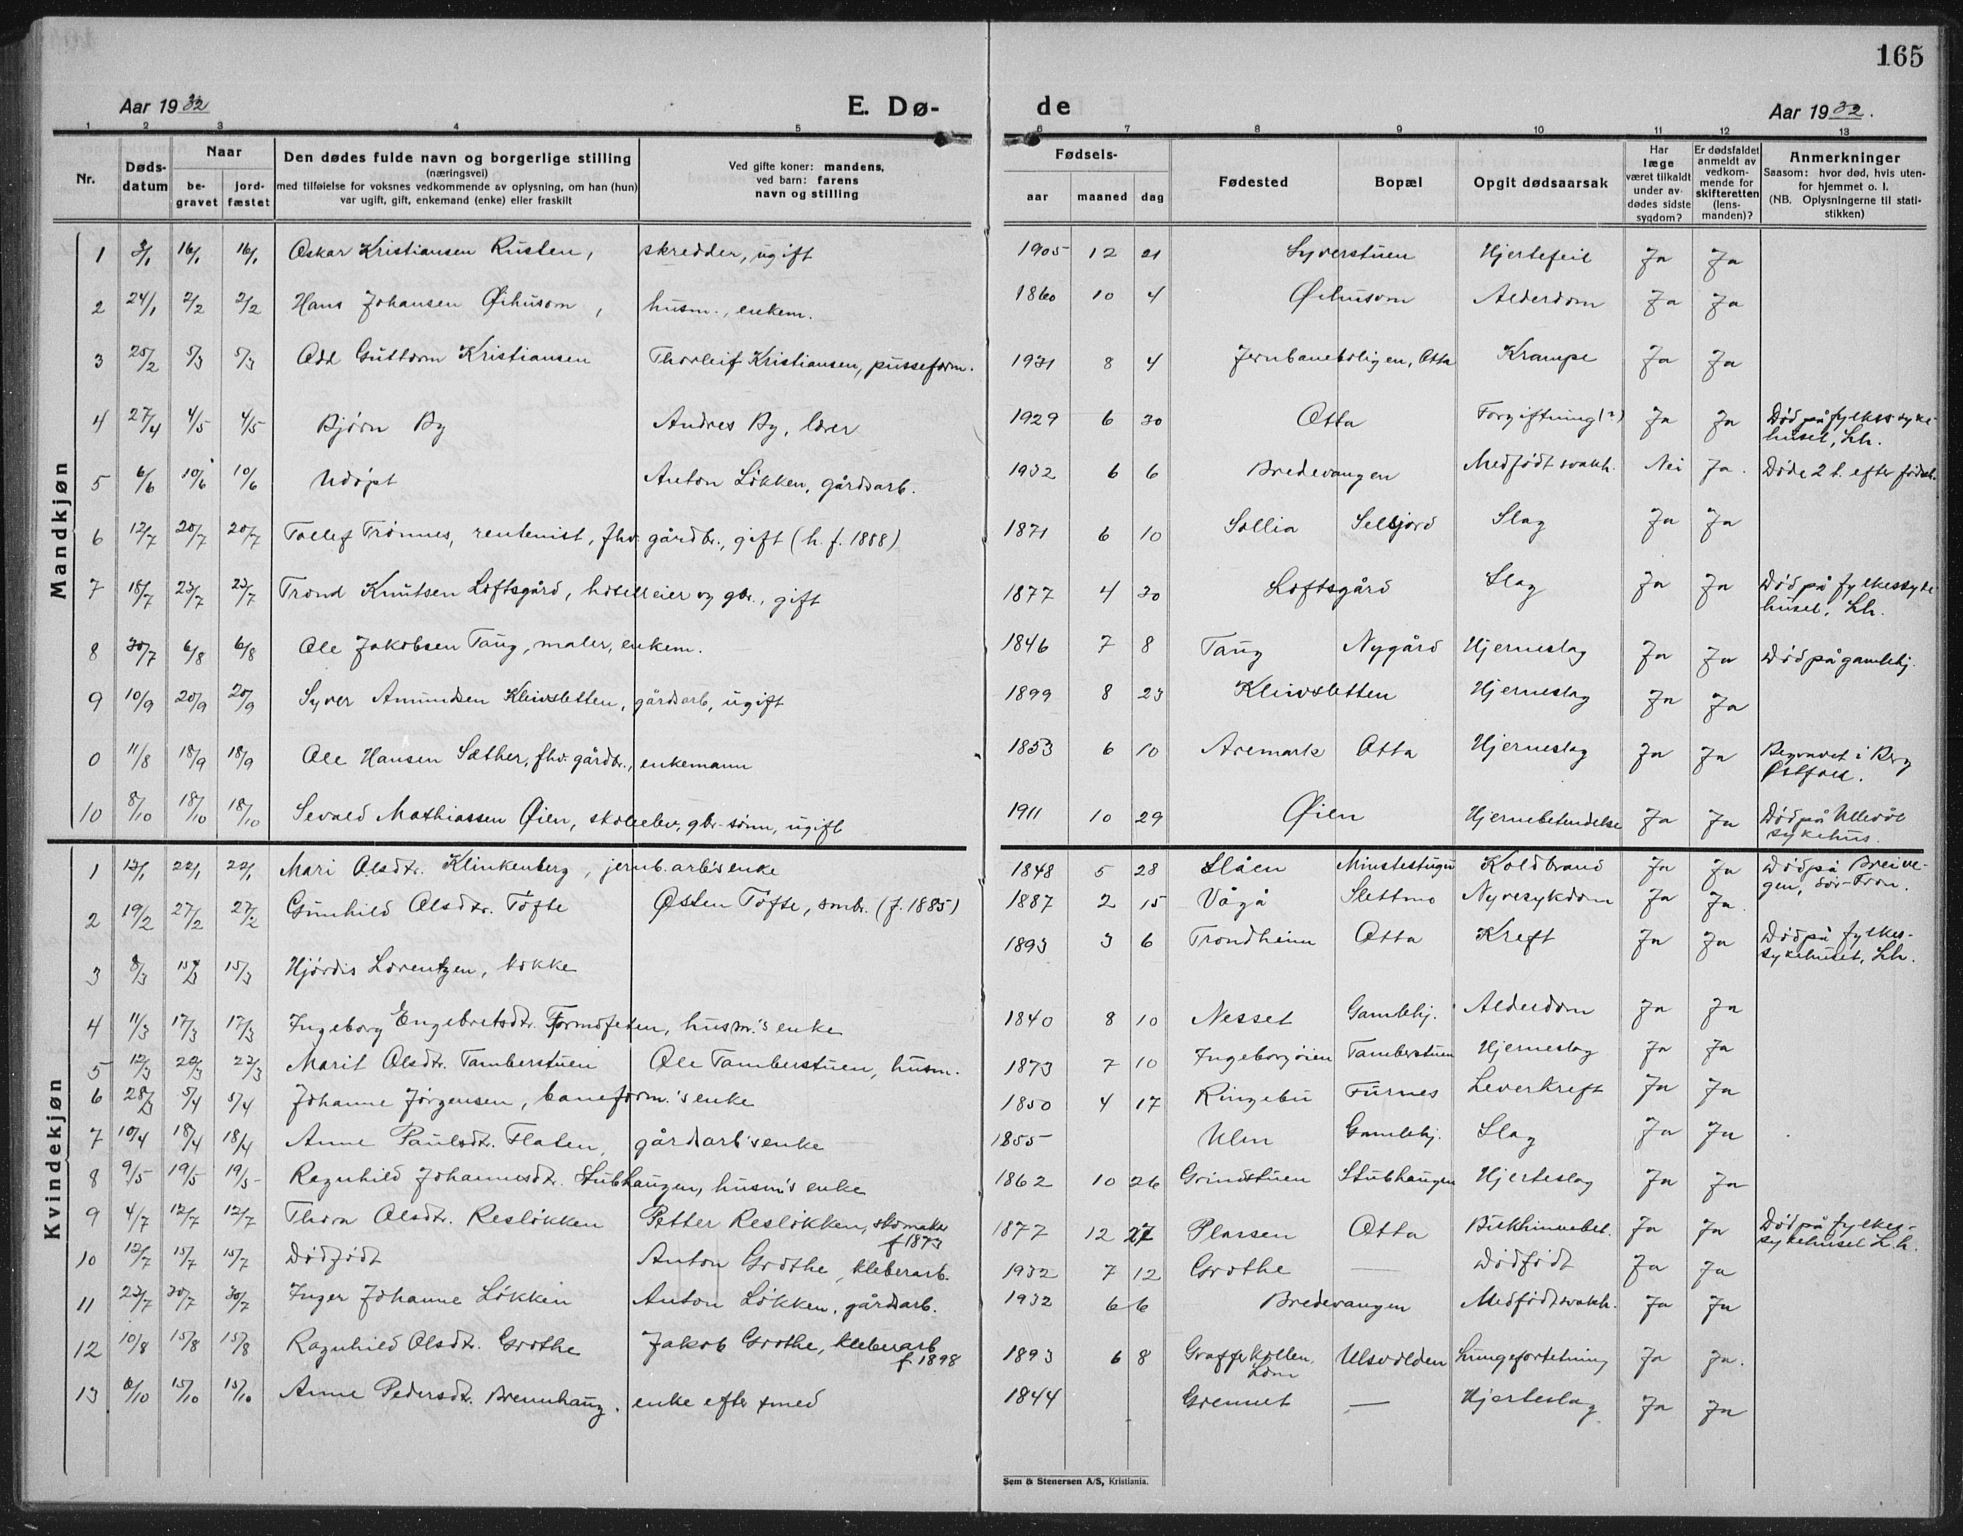 165
Aar 1932 E. Dø- de Aar 1932.
1 2 3 4 5 6 7 8 9 10 11 12 13
Nr. Døds-datum Naar be-gravet jord-fæstet Den dødes fulde navn og borgerlige stilling (næringsvei) med tilføielse for voksnes vedkommende av oplysning, om han (hun) var ugift, gift, enkemand (enke) eller fraskilt Ved gifte koner: mandens, ved barn: farens navn og stilling Fødsels- aar maaned dag Fødested Bopæl Opgit dødsaarsak Har læge været tilkaldt under av-dødes sidste sygdom? Er dødsfaldet anmeldt av vedkom-mende for skifteretten (lens-manden)? Anmerkninger Saasom: hvor død, hvis uten-for hjemmet o. l. (NB. Oplysningerne til stati-stikken)
Mandkjøn
1 3/1 16/1 16/1 Oskar Kristiansen Rusten, skredder, ugift 1905 12 21 Syverstuen Hjertefeil Ja Ja
2 24/1 2/2 2/2 Hans Johansen Øihusom, husm., enkem. 1860 10 4 Øihusom Alderdom Ja Ja
3 25/2 5/3 5/3 Odd Guttorm Kristiansen Thorleif Kristiansen, pusseform. 1931 8 4 Jernbaneboligen, Otta Krampe Ja Ja
4 27/4 4/5 4/5 Bjørn By Andres By, lærer 1929 6 30 Otta Forgiftning(?) Ja Ja Død på fylkessyke-huset, Lh.
5 6/6 10/6 10/6 Udøpt Anton Løkken, gårdsarb. 1932 6 6 Bredevangen Medfødt svakh. Nei Ja. Døde 2 t. efter fødsel.
6 12/7 20/7 20/7 Tollef Trønnes, rentenist, fhv. gårdbr., gift (h. f. 1888) 1871 6 10 Sollia Selsjord Slag Ja Ja
7 18/7 23/7 23/7 Trond Knutsen Loftsgård, hotelleier og gbr., gift 1877 4 30 Loftsgård Slag Ja Ja Død på fylkessyke-huset, Lh.
8 30/7 6/8 6/8 Ole Jakobsen Taug, maler, enkem. 1846 7 8 Taug Nygård Hjerneslag Ja Ja Død på gamlehj.
9 10/9 20/9 20/9 Syver Amundsen Kleivsletten, gårdsarb, ugift 1899 8 23 Kleivsletten Hjerneslag Ja Ja
0 11/8 18/9 18/9 Ole Hansen Sæther, fhv. gårdbr., enkemann 1853 6 10 Aremark Otta Hjerneslag Ja Ja Begravet i Berg Østfold.
10 8/10 18/10 18/10 Sevald Mathiassen Øien, skoleelev, gbr-sønn, ugift 1911 10 29 Øien Hjernebetendelse Ja Ja Død på Ullevål sykehus.
Kvindekjøn
1 13/1 22/1 22/1 Mari Olsdtr. Klinkenberg, jernb.arb's enke 1848 5 28 Slåen Koldbrand Ja Ja Død på Breive-gen, Sør-Fron.
2 19/2 27/2 27/2 Gunhild Olsdtr. Tofte Østen Tofte, smbr. (f. 1885) 1887 2 15 Vågå Slettmo Nyresykdom Ja Ja.
3 8/3 15/3 15/3 Hjørdis Lorentzen, kokke 1893 3 6 Trondheim Otta Kreft Ja Ja Død på fylkes-sykehuset, Lh.
4 11/3 17/3 17/3 Ingeborg Engebretsdtr. Formofeten, husm.'s enke 1840 8 10 Nesset Gamlehj. Alderdom Ja Ja
5 12/3 22/3 22/3 Marit Olsdtr. Tamberstuen Ole Tamberstuen, husm. 1873 7 10 Ingeborgøien Tamberstuen Hjerneslag Ja Ja
6 28/3 5/4 5/4 Johanne Jørgensen, baneform.'s enke 1850 4 17 Ringebu Furnes Leverkreft Ja Ja
7 10/4 18/4 18/4 Anne Paulsdtr. Flaten, gårdsarb's enke 1855 Ulm Gamlehj. Slag Ja Ja
8 9/5 19/5 19/5 Ragnhild Johannesdtr. Stubhaugen, husm's enke 1862 10 26 Grindstuen Stubhaugen Hjerteslag Ja Ja
9 4/7 12/7 12/7 Thora Olsdtr. Resløkken Petter Resløkken, skomaker f 1873 1877 12 27 Plassen Otta Bukhinnebet. Ja Ja Død på fylkes-sykehuset L.h.
10 12/7 15/7 15/7 Dødfødt Anton Grothe, kleberarb. 1932 7 12 Grothe — Dødfødt Ja Ja
11 23/7 30/7 30/7 Inger Johanne Løkken Anton Løkken, gårdsarb. 1932 6 6 Bredevangen Medfødt svakh. Ja Ja
12 10/8 15/8 15/8 Ragnhild Olsdtr. Grothe Jakob Grothe, kleberarb f. 1898 1893 6 8 Graffekollen, Lom Ulsvolden Lungefortetning Ja Ja.
13 6/10 15/10 15/10 Anne Pedersdtr. Brennhaug. enke efter smed 1844 Grennet — Hjerteslag Ja Ja
Sem & Stenersen A/S, Kristiania.